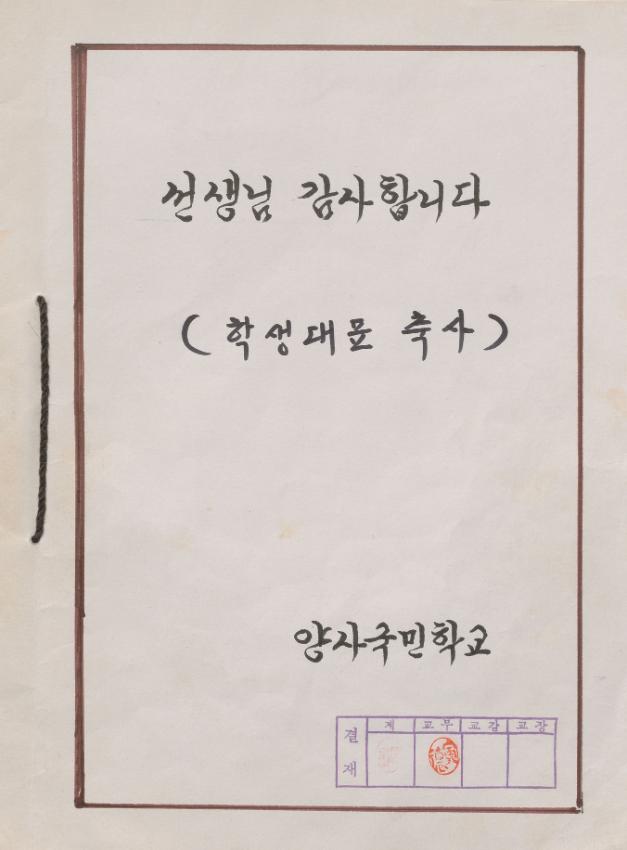 선생님 감사합니다
(학생대문 축사)
양사국민학교
결재
계 교무 교감 교장